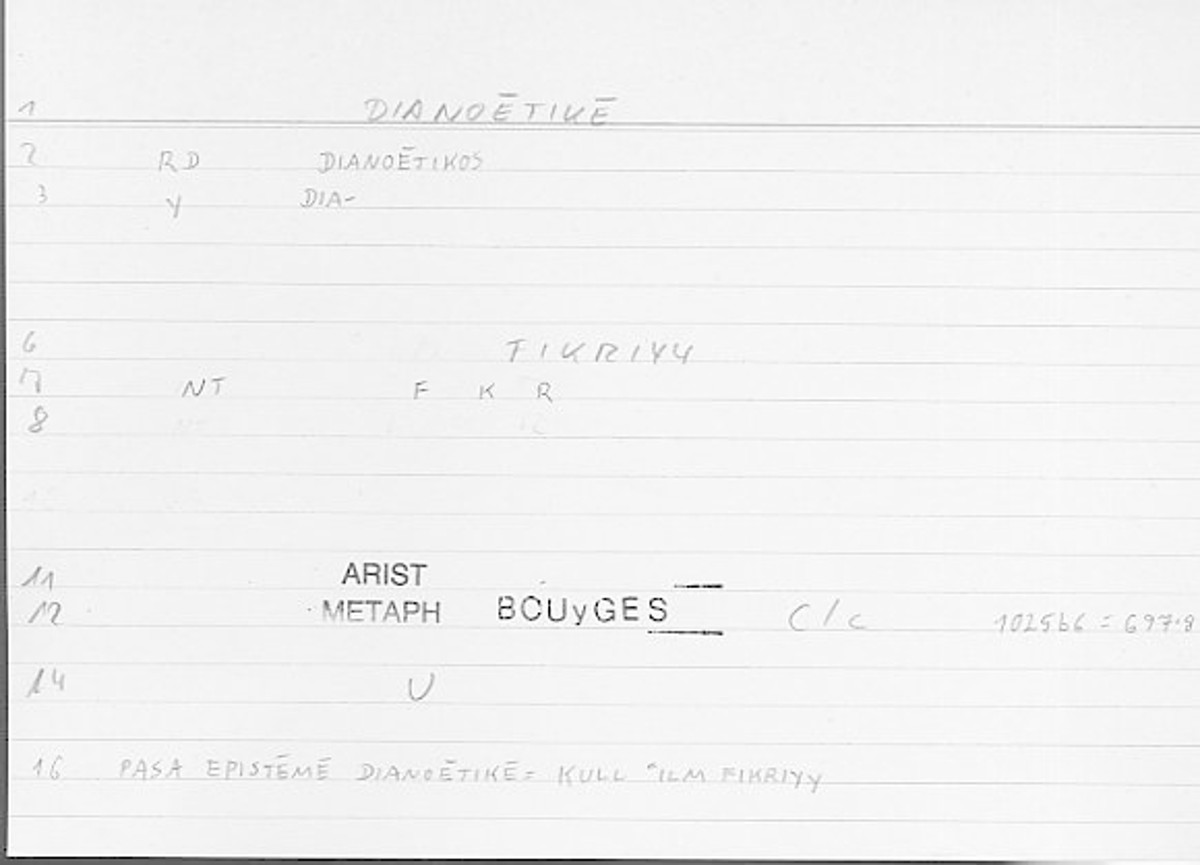 1 DIANOĒTIKĒ
2 RD DIANOĒTIKOS
3 y DIA-
6 FIKRIYY
7 NT F K R
8
11 ARIST
12 METAPH BOUyGES C/c 1025b6 = 697.8
14 U
16 PASA EPISTĒMĒ DIANOĒTIKĒ = KULL ʿILM FIKRIYY